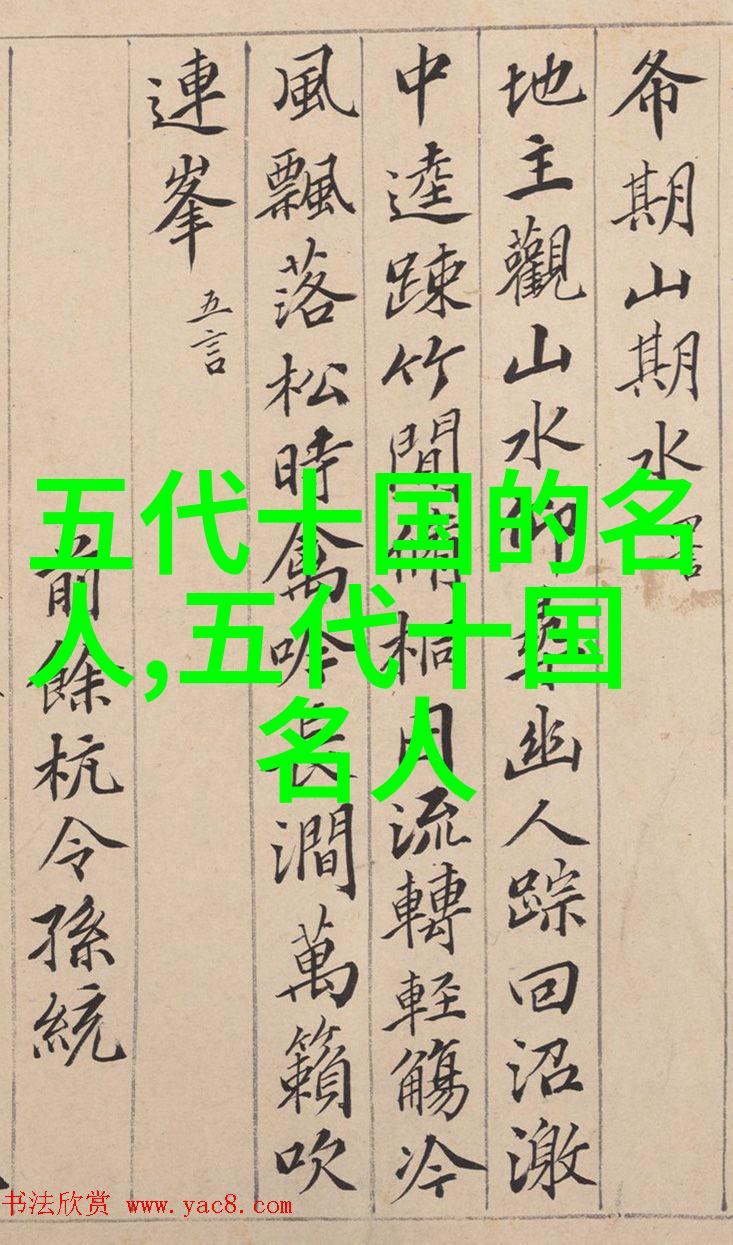 希期山期水 四言
地主觀山水仰尋幽人蹤回沼激
中逵踈竹間脩桐因流轉輕觴冷
風飄落松時禽吟長澗萬籟吹
連峯 五言
前餘杭令孫統
五代十国的名
人,五代十国
名人
书法欣赏 www.yac8.com